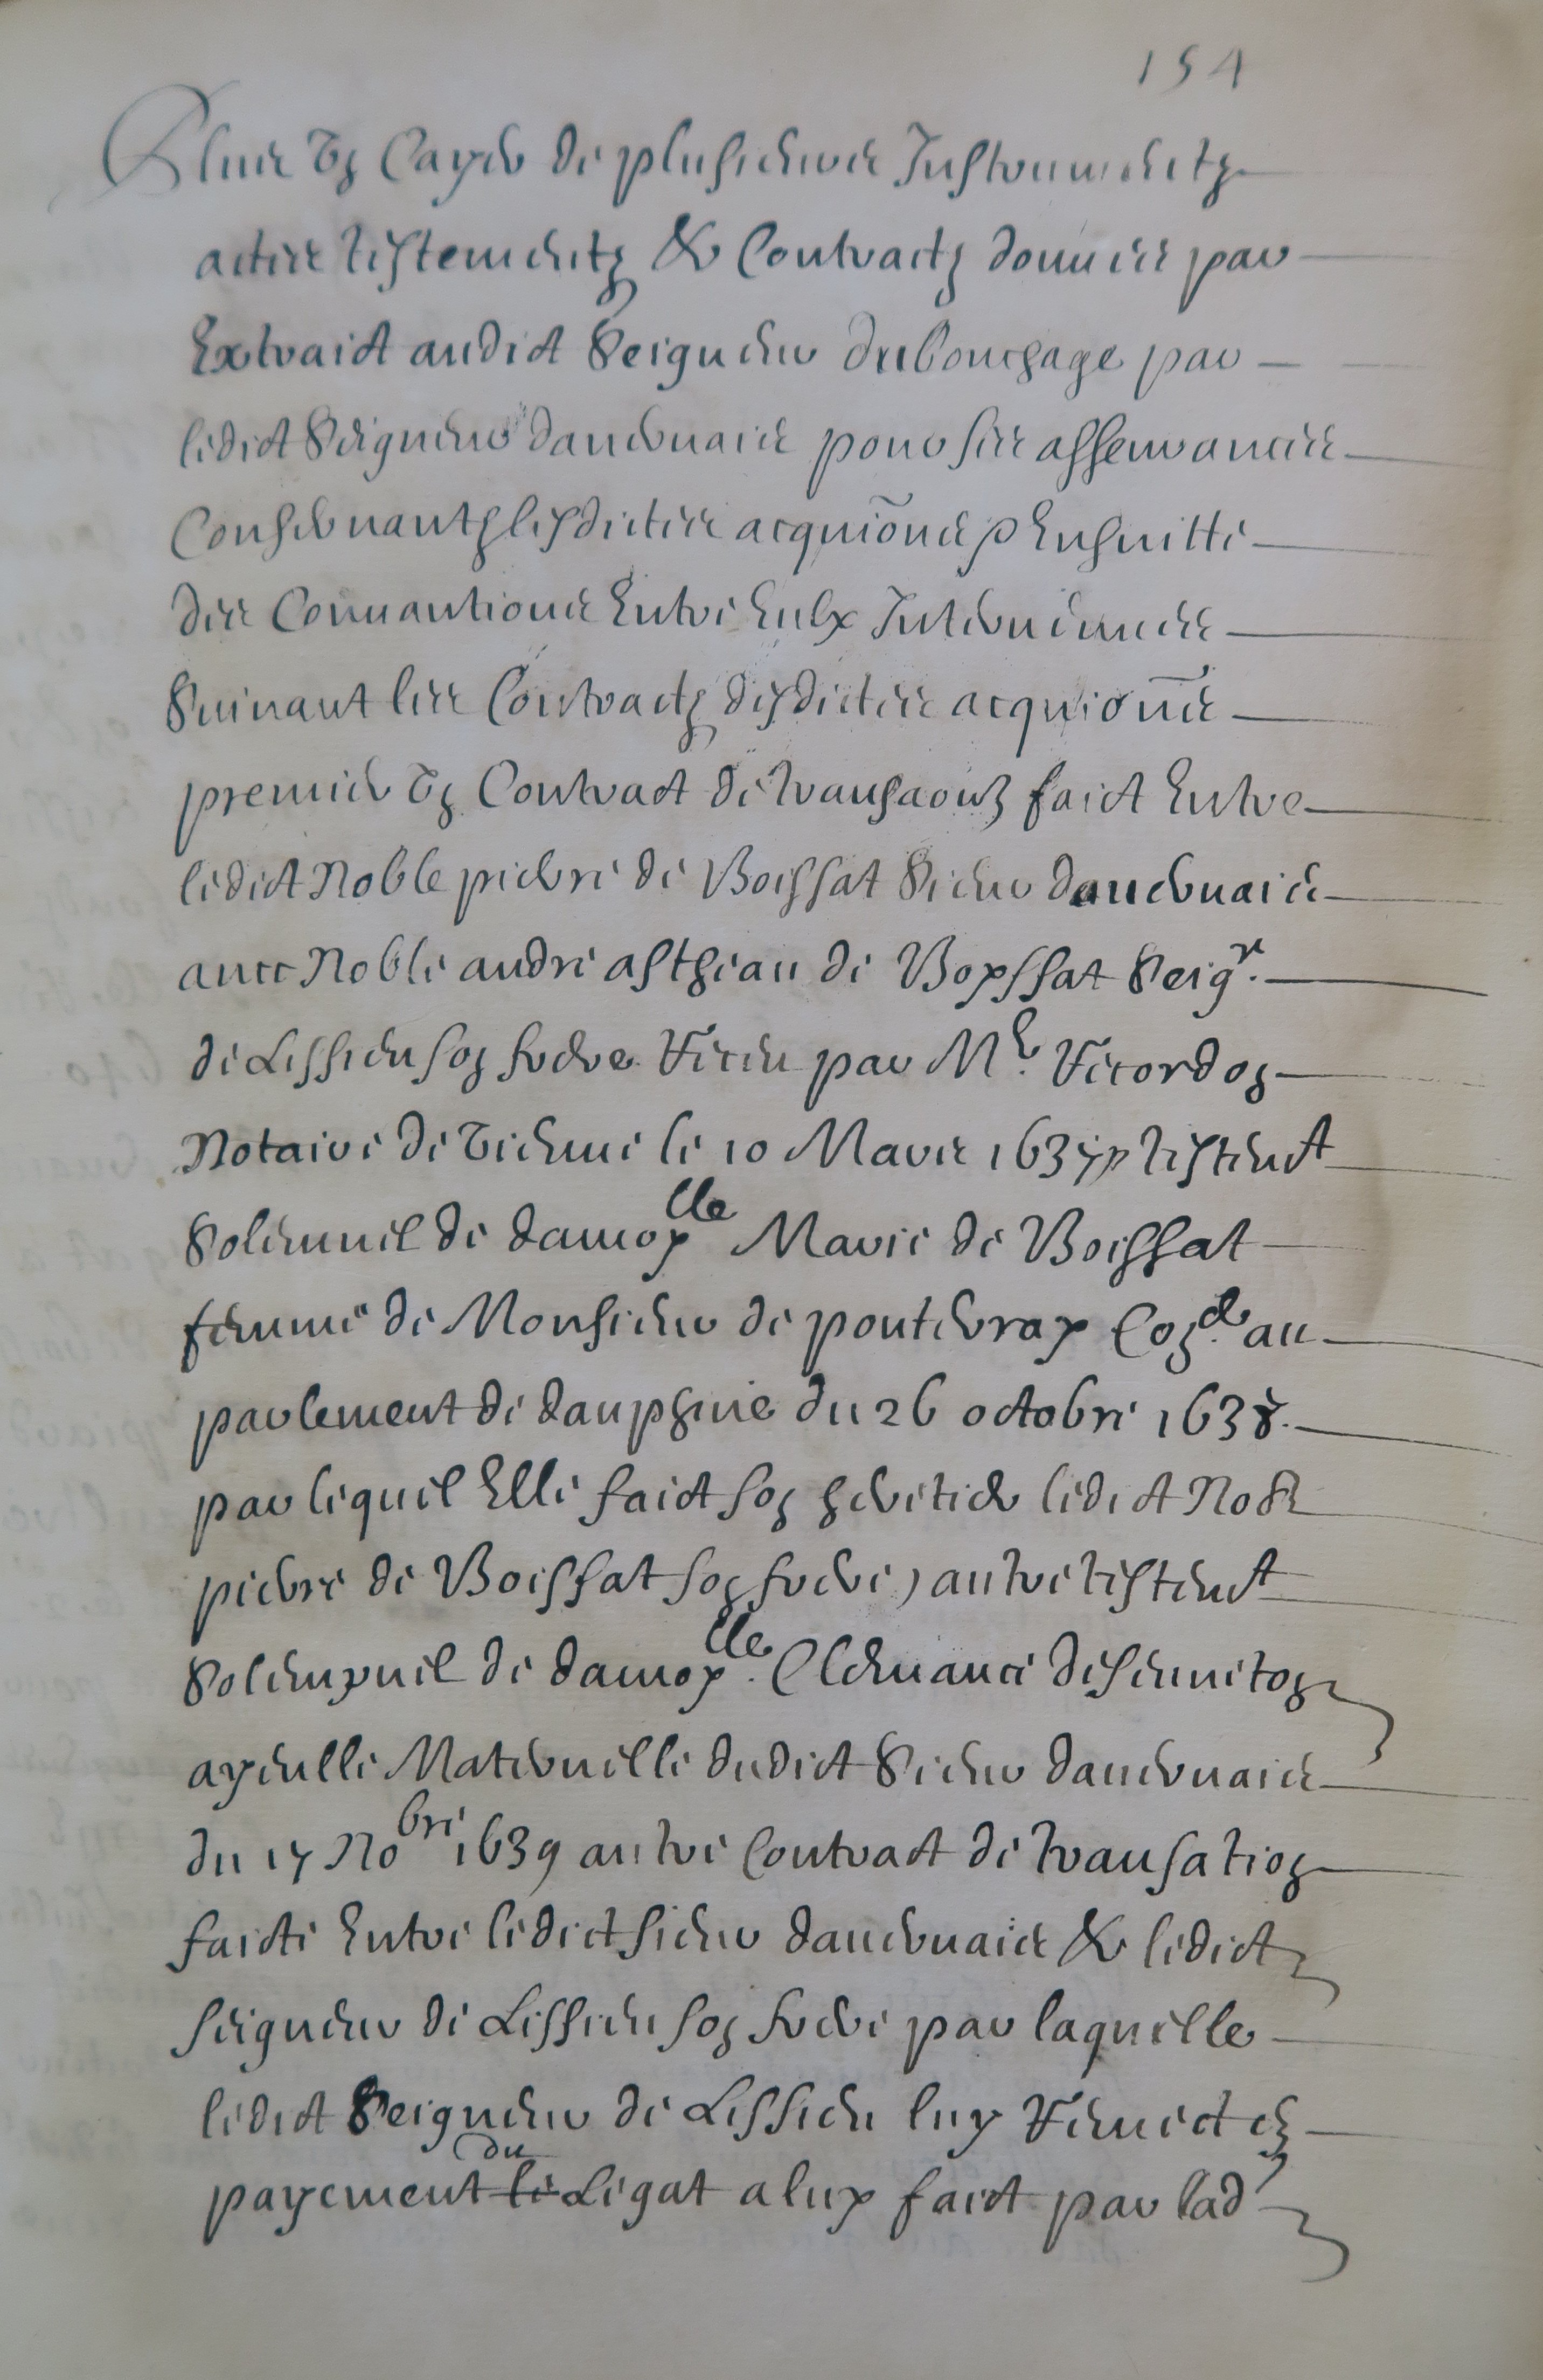 154
Plus un Cayer de plusieurs Instrumentz
actes testementz & Contractz donnes par
Extraict audict Seigneur dubouchage par
ledict Seigneur dauernais pour ses asseurances
Consernantz lesdictes acquiõns p Ensuitte
des Conuantions Entre Eulx Interuenues
Suiuant les Contractz desdictes acquiõns
premier un Contract de transaon faict Entre
ledict Noble pierre de Boissat Sieur dauernais
auec Noble andre astheau de Boyssat Seigr.
de Lissieu son frere Receu par Me. Recordon
Notaire de Vienne le 10 Mars 1637 p testent
Solemnel de damoylle Marie de Boissat
femme de Monsieur de ponteuray Coner au
parlement de dauphine du 26 octobre 1638.
par lequel Elle faict son heretier ledict Noble
pierre de Boissat son frere, autre testent
Solempnel de damoylle. Clemance de semeton
ayeulle Maternelle dudict Sieur dauernais
du 17 Nobre 1639 autre Contract de transation
faicte Entre ledict sieur dauernais & ledict
seigneur de Lissieu son frere par laquelle
ledict Seigneur de Lissieu luy Remect en
payement du Legat a luy faict par lad